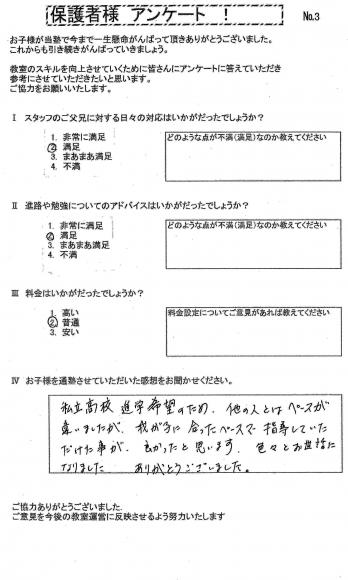 保護者様 アンケート ！
No.3
お子様が当塾で今まで一生懸命がんばって頂きありがとうございました。
これからも引き続きがんばっていきましょう。
教室のスキルを向上させていくために皆さんにアンケートに答えていただき
参考にさせていただきたいと思います。
ご協力をお願いいたします。
Ⅰ スタッフのご父兄に対する日々の対応はいかがだったでしょうか？
1. 非常に満足
2. 満足
3. まあまあ満足
4. 不満
どのような点が不満(満足)なのか教えてください
Ⅱ 進路や勉強についてのアドバイスはいかがだったでしょうか？
1. 非常に満足
2. 満足
3. まあまあ満足
4. 不満
どのような点が不満(満足)なのか教えてください
Ⅲ 料金はいかがだったでしょうか？
1. 高い
2. 普通
3. 安い
料金設定についてご意見があれば教えてください
Ⅳ お子様を通塾させていただいた感想をお聞かせください。
私立高校 進学希望のため、他の人とはペースが
違いましたが、我が子に合ったペースで指導していた
だけた事が、良かったと思います。色々とお世話に
なりました ありがとうございました。
ご協力ありがとうございました。
ご意見を今後の教室運営に反映させるよう努力いたします